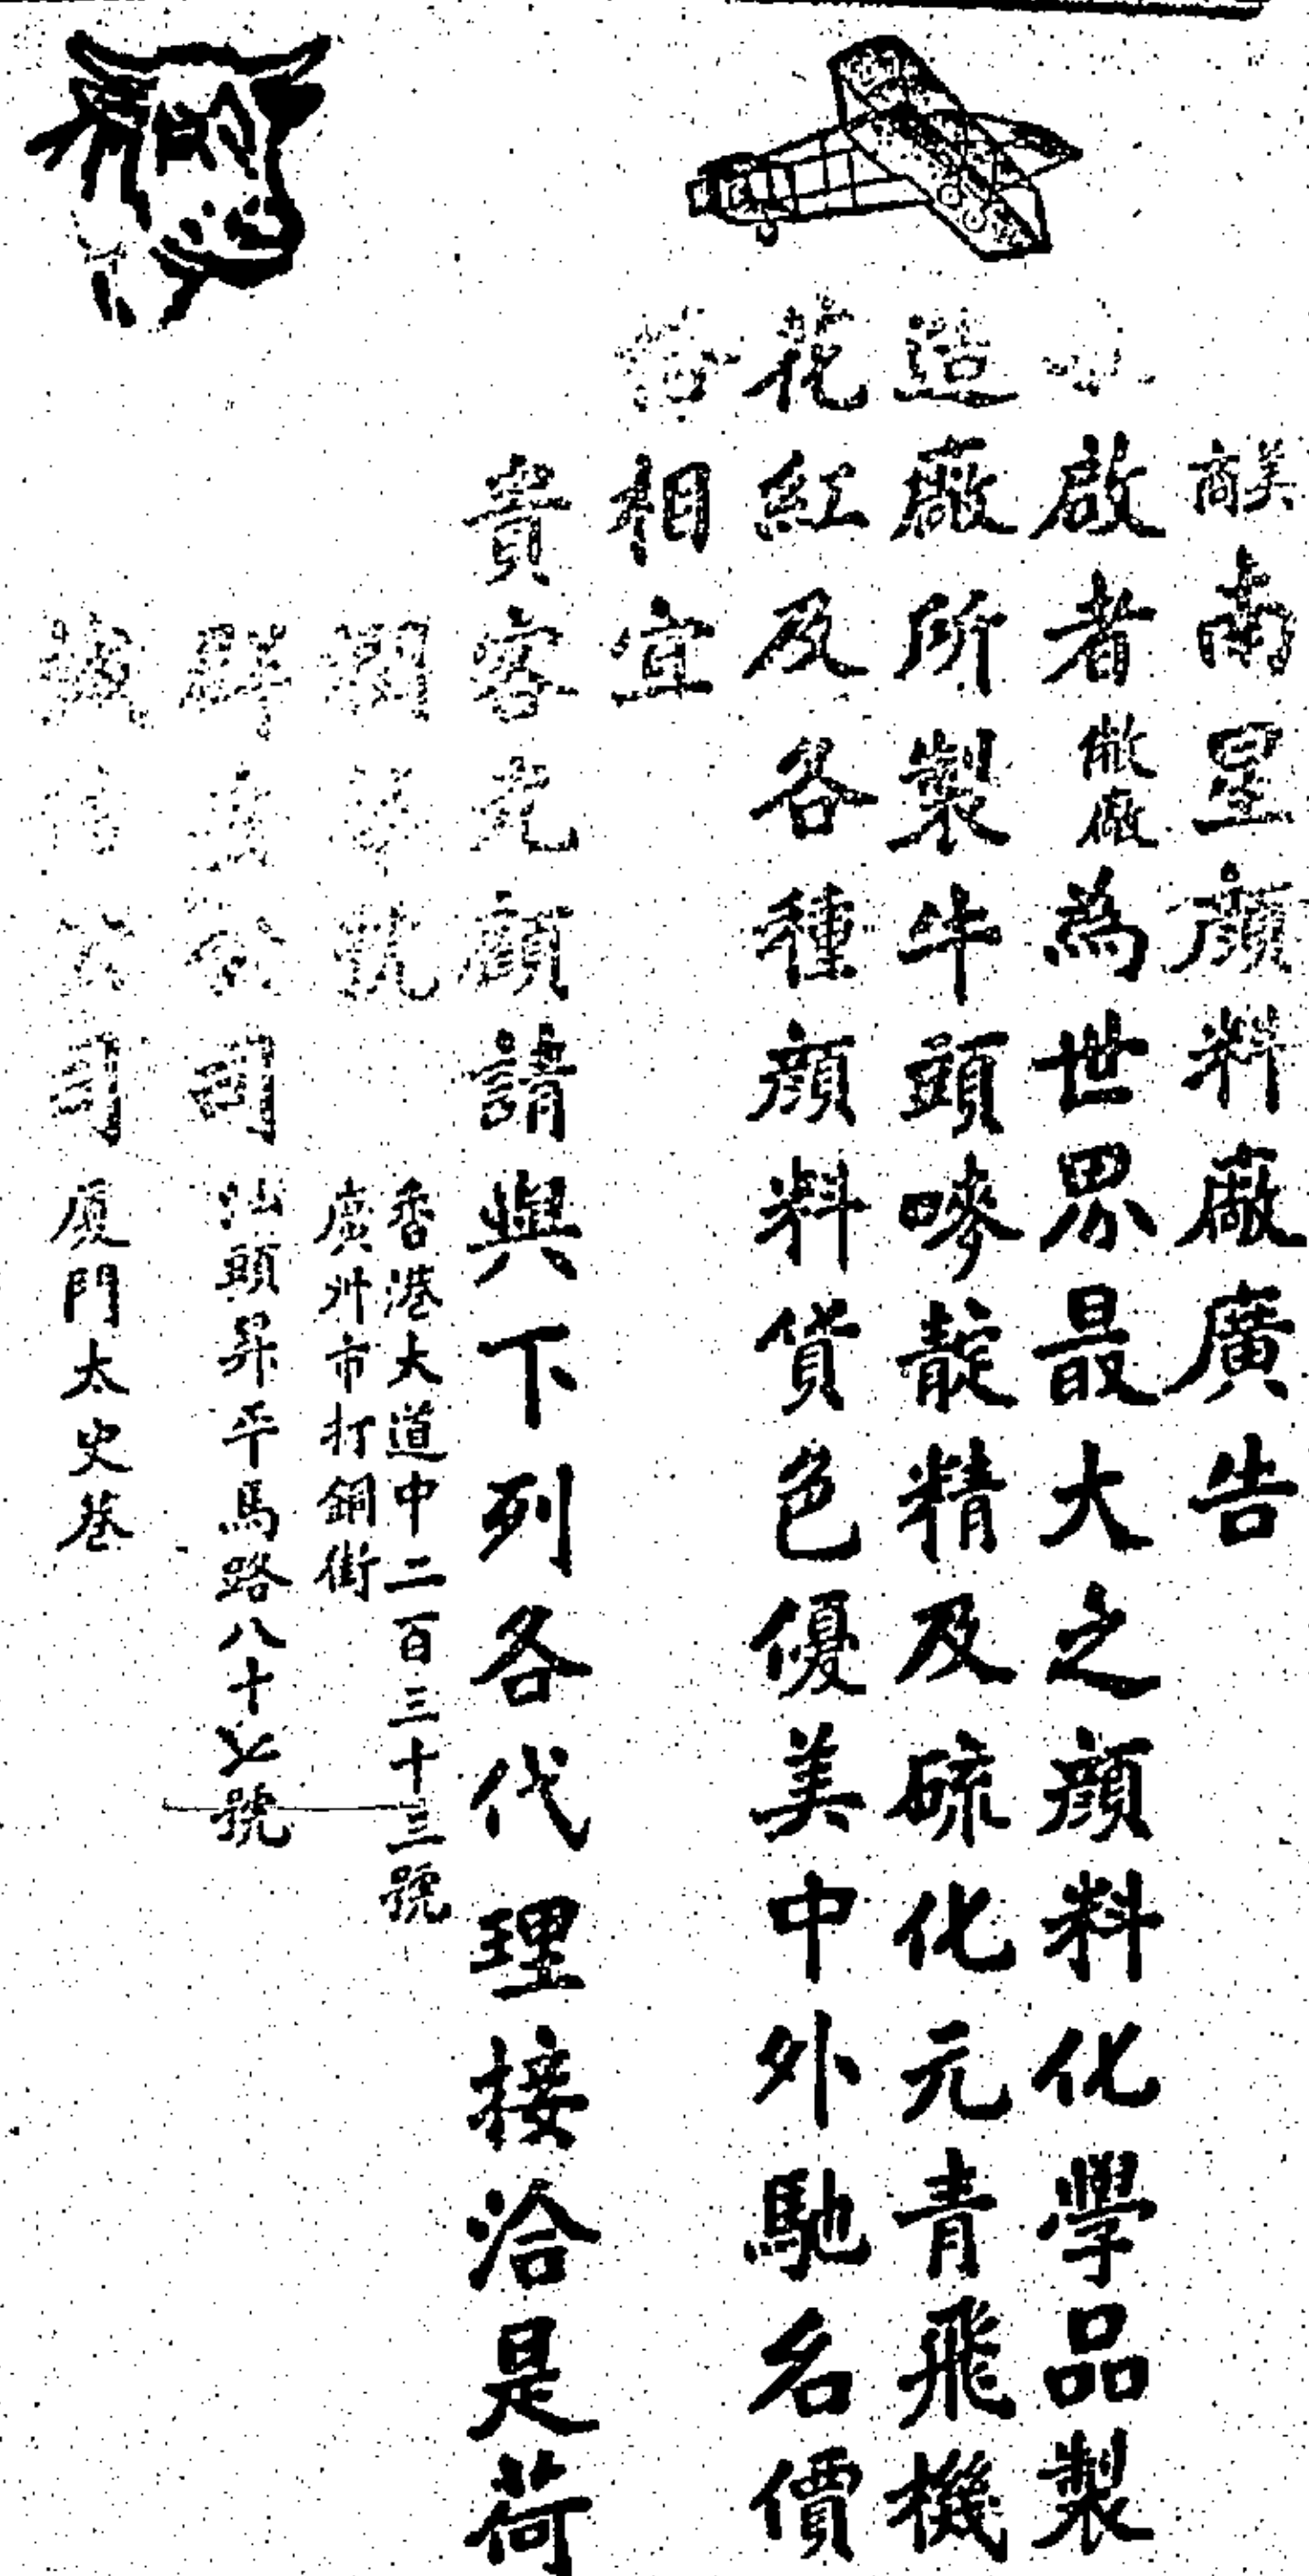 美商南星顏料廠廣告
啟者敝廠為世界最大之顏料化學品製
造廠所製牛頭嘜靛精及硫化元青飛機
花紅及各種顏料貨色優美中外馳名價
相宜
貴客光顧請與下列各代理接洽是荷
香港大道中二百三十三號
廣州市打銅街
司 汕頭昇平馬路八十七號
司 厦門太史巷